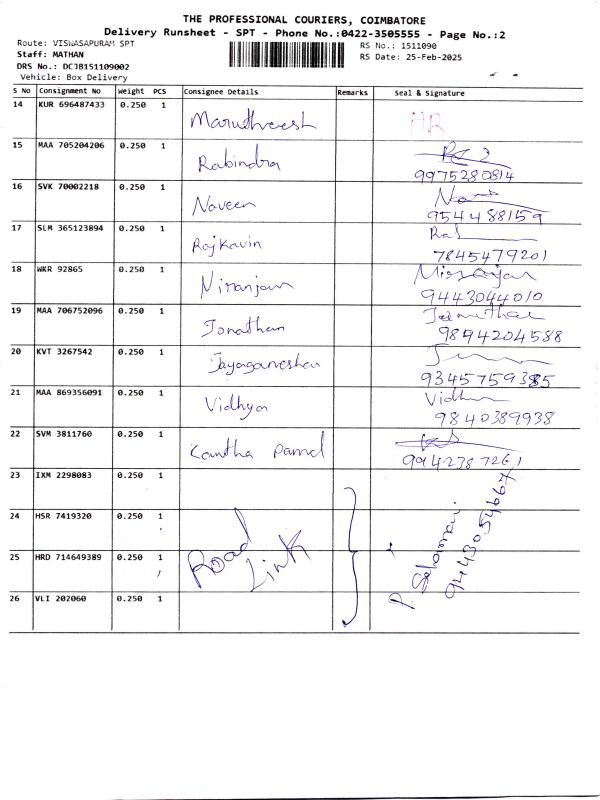 THE PROFESSIONAL COURIERS, COIMBATORE
Delivery Runsheet - SPT - Phone No.:0422-3505555 - Page No.:2
Route: VISWASAPURAM SPT
Staff: MATHAN
DRS No.: DCJB151109002
Vehicle: Box Delivery
RS No.: 1511090
RS Date: 25-Feb-2025
S No Consignment No Weight PCS Consignee Details Remarks Seal & Signature
14 KUR 696487433 0.250 1 Maruthveesh HR
15 MAA 705204206 0.250 1 Rabindra
9975280814
16 SVK 70002218 0.250 1 Naveen
954488159
17 SLM 365123894 0.250 1 Rajkavin Raj
7845479201
18 WKR 92865 0.250 1 Niranjan Niranjan
9443044010
19 MAA 706752096 0.250 1 Jonathan Jonathan
9894204588
20 KVT 3267542 0.250 1 Jayaganeshan
9345759385
21 MAA 869356091 0.250 1 Vidhya Vidhya
9840389938
22 SVM 3811760 0.250 1 Kantha
9942387261
23 IXM 2298083 0.250 1
24 HSR 7419320 0.250 1
25 HRD 714649389 0.250 1
26 VLI 202060 0.250 1
Road Link
P. Selvamani
9443054667